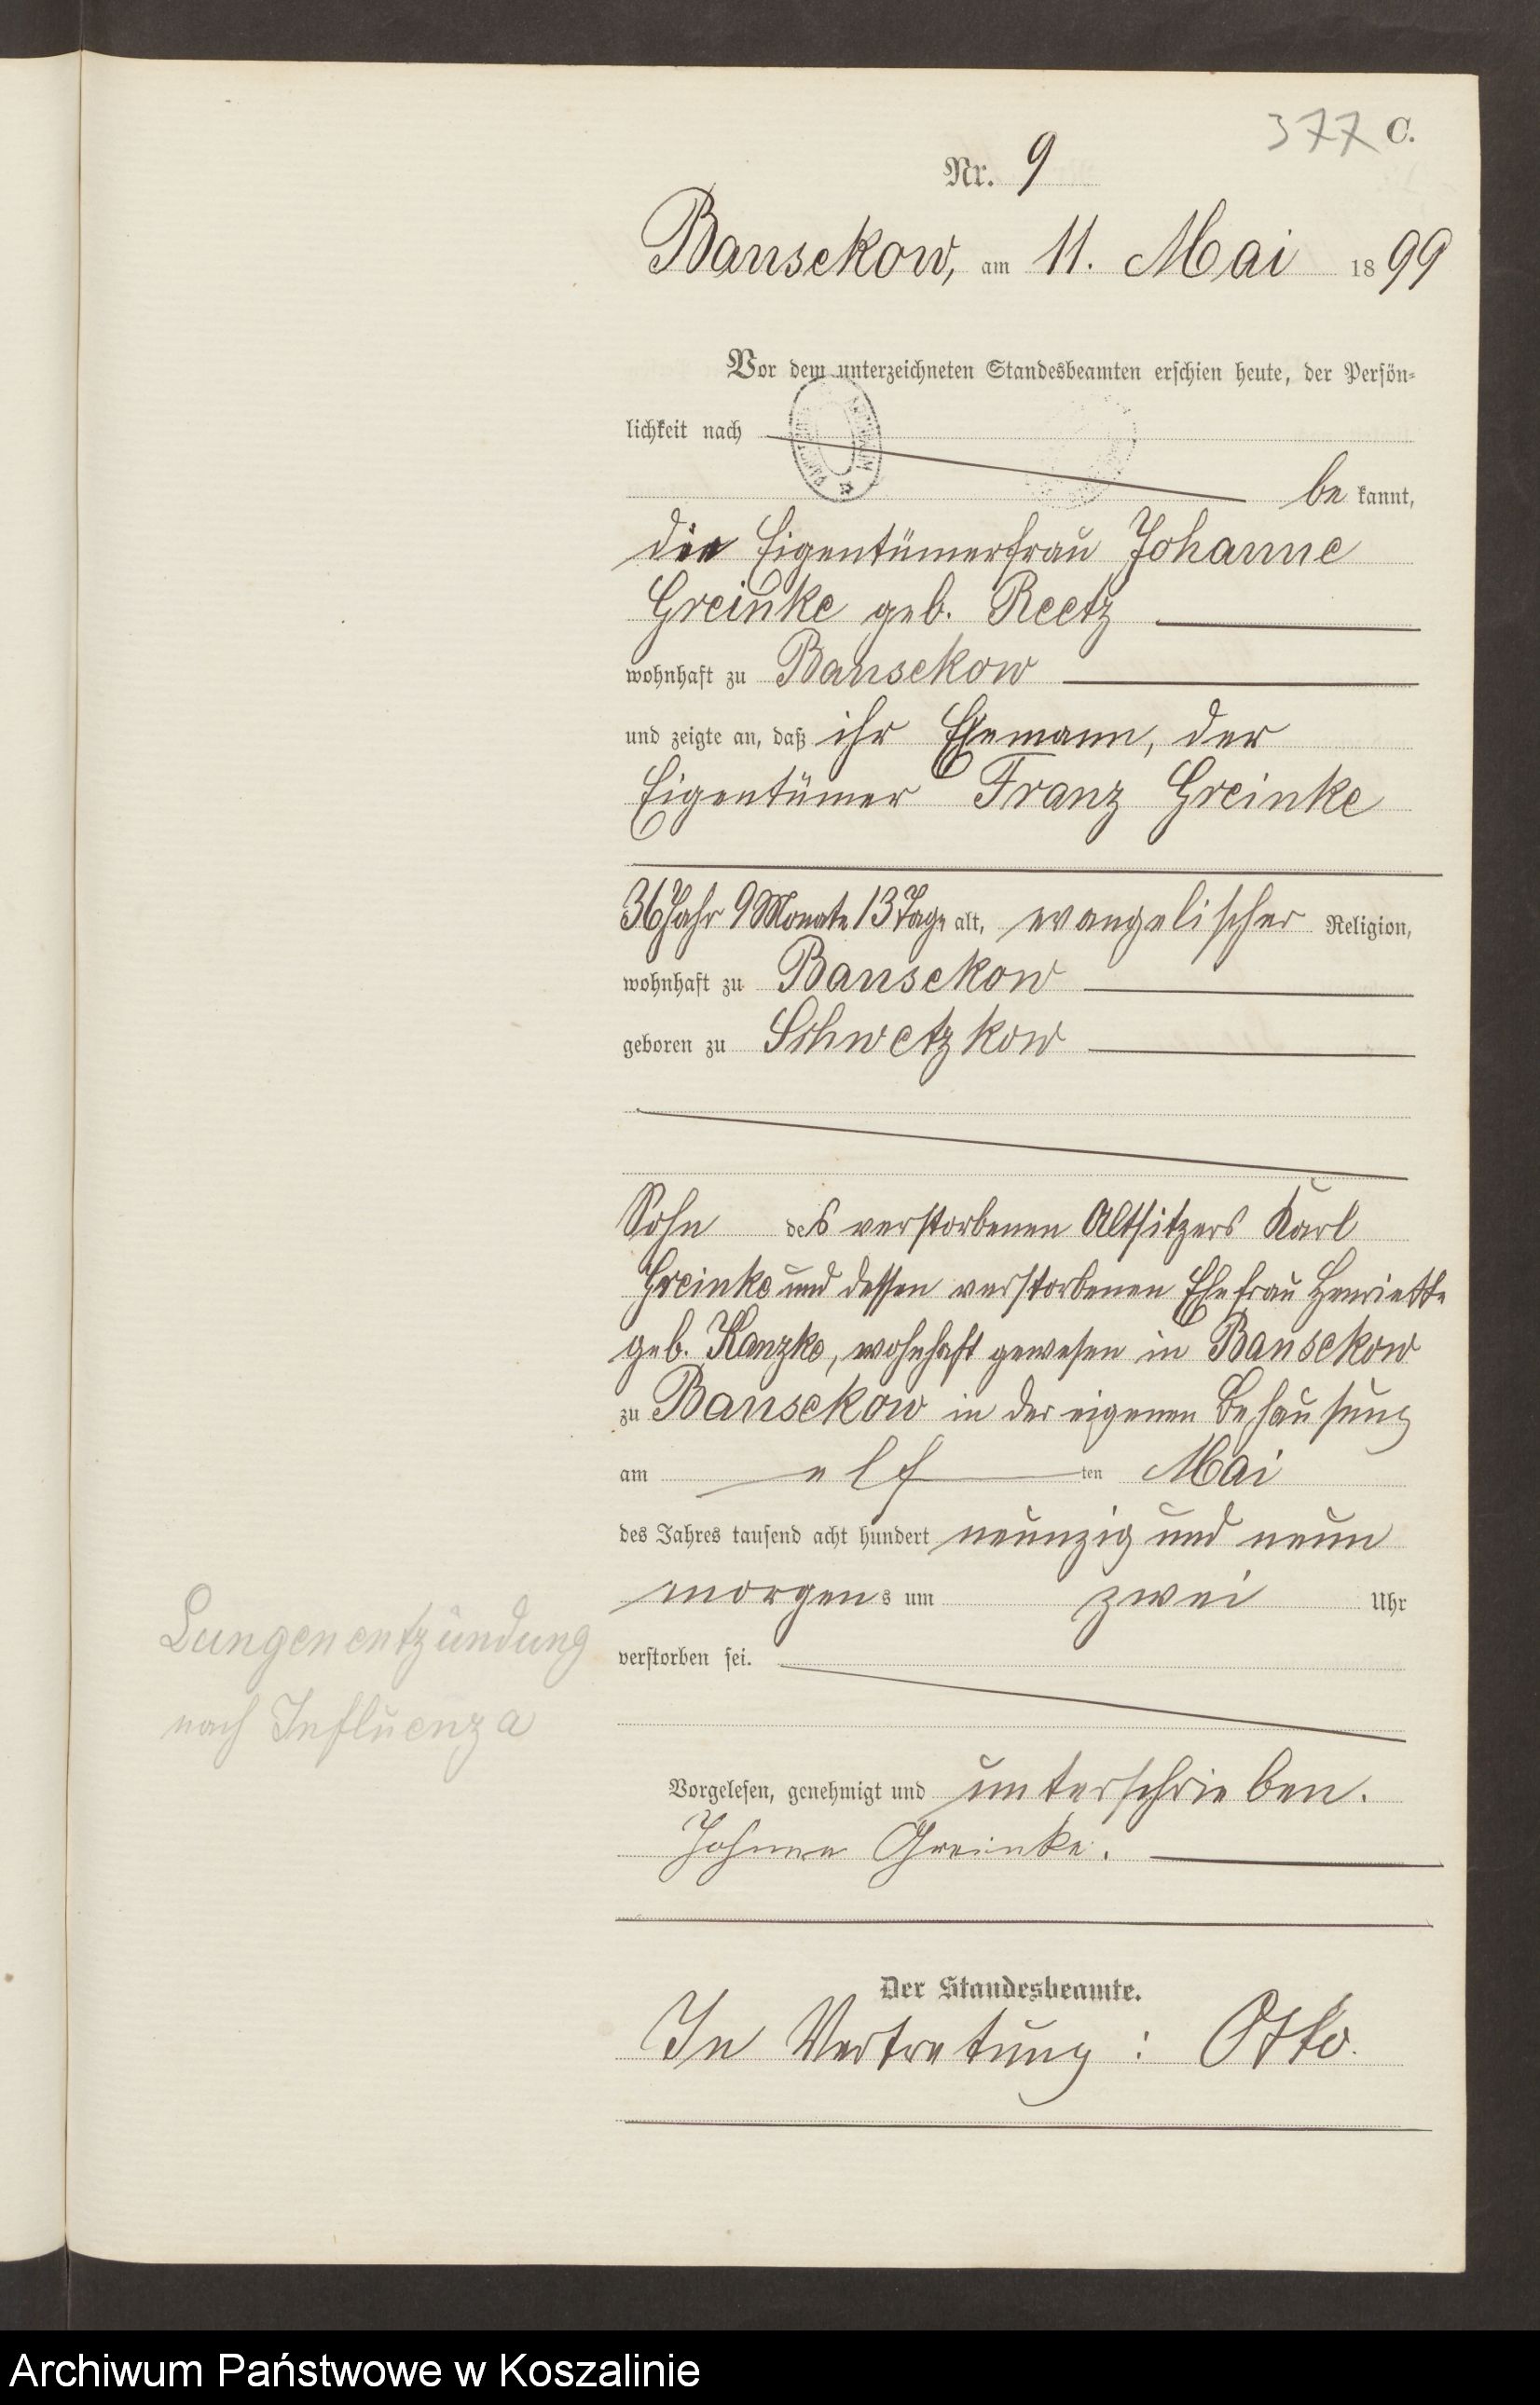 377 C.
Nr. 9
Bansekow, am 11. Mai 1899
Vor dem unterzeichneten Standesbeamten erschien heute, der Persön-
lichkeit nach
be kannt,
die Eigentümerfrau Johanne
Greinke geb. Reetz
wohnhaft zu Bansekow
und zeigte an, daß ihr Ehemann, der
Eigentümer Franz Greinke
36 Jahr 9 Monate 13 Tage alt, evangelischer Religion,
wohnhaft zu Bansekow
geboren zu Schwetzkow
Sohn des verstorbenen Altsitzers Karl
Greinke und dessen verstorbenen Ehefrau Henriette
geb. Kanzke, wohnhaft gewesen in Bansekow
zu Bansekow in der eigenen Behausung
am elf ten Mai
des Jahres tausend acht hundert neunzig und neun
morgens um zwei Uhr
verstorben sei.
Lungenentzündung
nach Influenza
Vorgelesen, genehmigt und unterschrieben.
Johanne Greinke.
Der Standesbeamte.
In Vertretung: Otto.
Archiwum Państwowe w Koszalinie